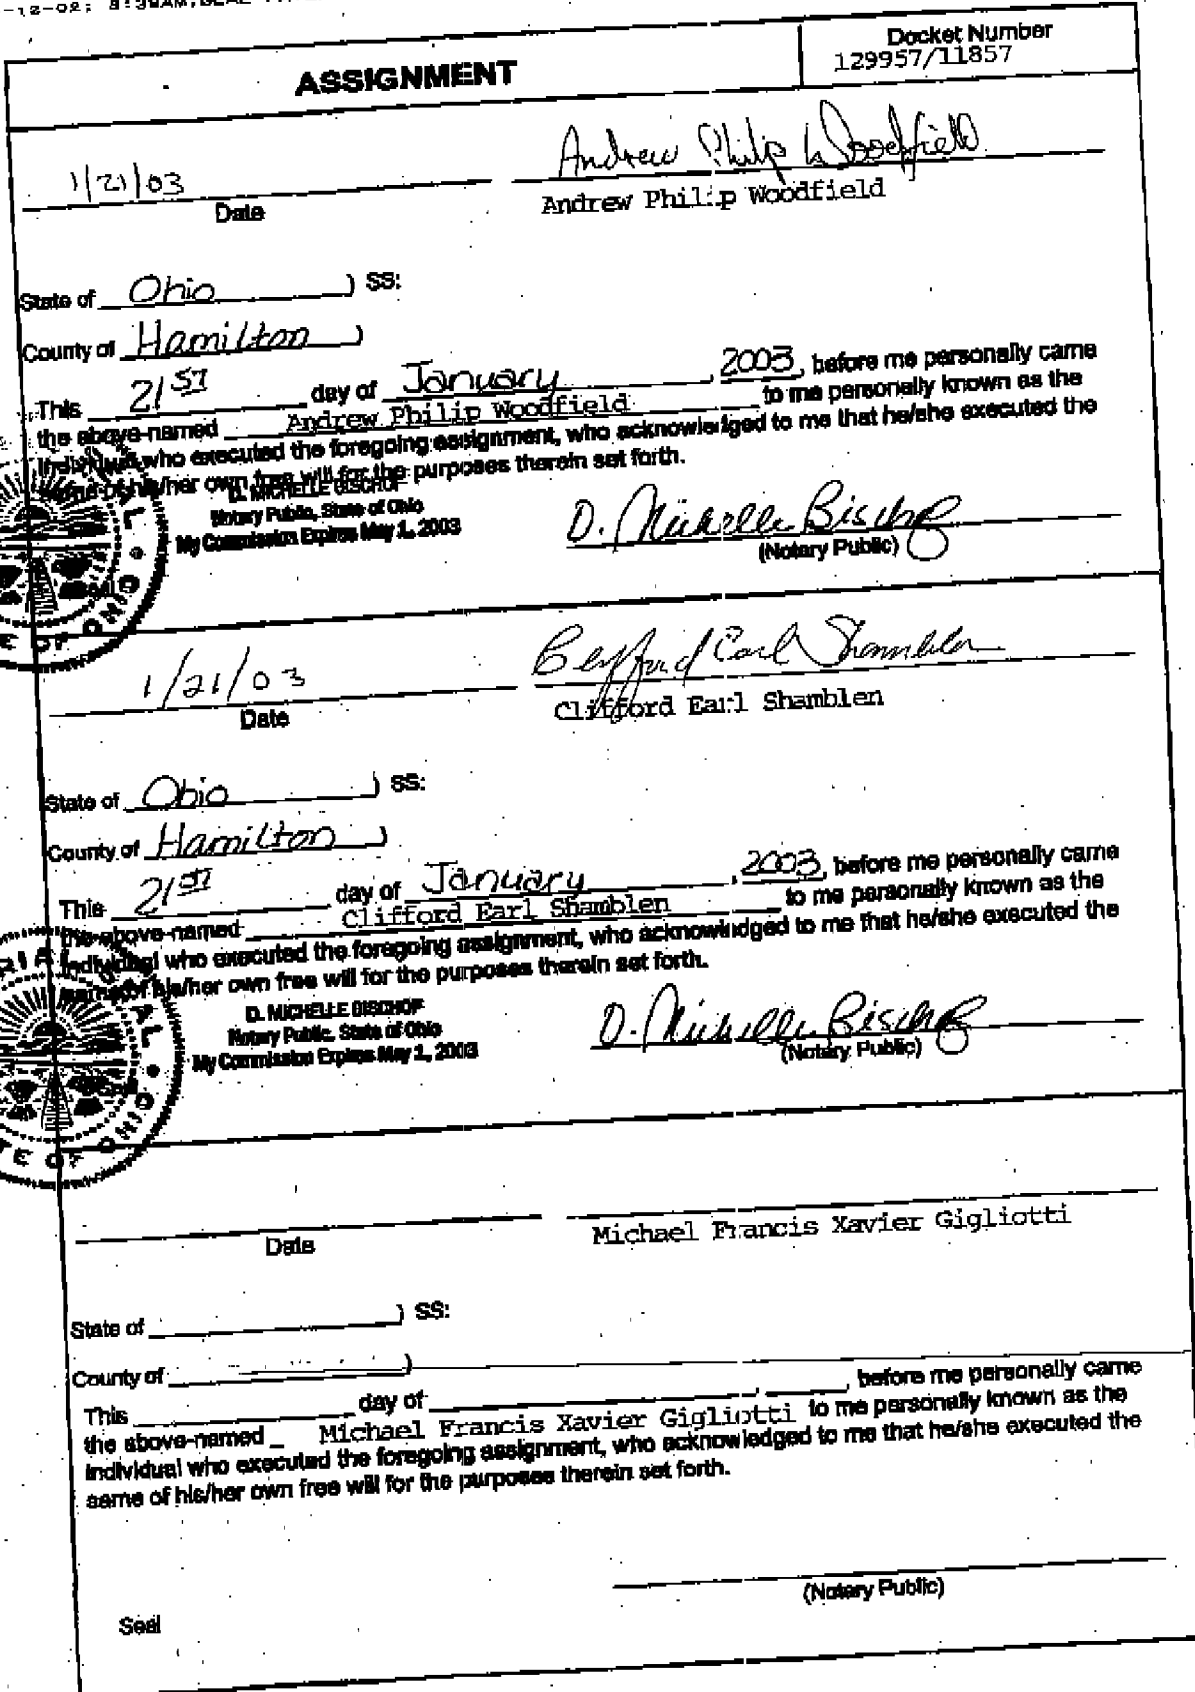 Docket Number
ASSIGNMENT
129957/11857
Andrew Philip Woodfield
1/21/03
Date
Andrew Philip Woodfield
State of Ohio ) SS:
County of Hamilton )
This 21ST day of January, 2003, before me personally came
the above-named Andrew Philip Woodfield to me personally known as the
individual who executed the foregoing assignment, who acknowledged to me that he/she executed the
same of his/her own free will for the purposes therein set forth.
D. MICHELLE BISCHOF
Notary Public, State of Ohio
My Commission Expires May 1, 2003
D. Michelle Bischof
(Notary Public)
OF OHIO
Clifford Earl Shamblen
1/21/03
Date
Clifford Earl Shamblen
State of Ohio ) SS:
County of Hamilton )
This 21ST day of January, 2003, before me personally came
the above-named Clifford Earl Shamblen to me personally known as the
individual who executed the foregoing assignment, who acknowledged to me that he/she executed the
same of his/her own free will for the purposes therein set forth.
D. MICHELLE BISCHOF
Notary Public, State of Ohio
My Commission Expires May 1, 2003
D. Michelle Bischof
(Notary Public)
OF OHIO
Date
Michael Francis Xavier Gigliotti
State of ) SS:
County of )
This day of , , before me personally came
the above-named Michael Francis Xavier Gigliotti to me personally known as the
individual who executed the foregoing assignment, who acknowledged to me that he/she executed the
same of his/her own free will for the purposes therein set forth.
(Notary Public)
Seal